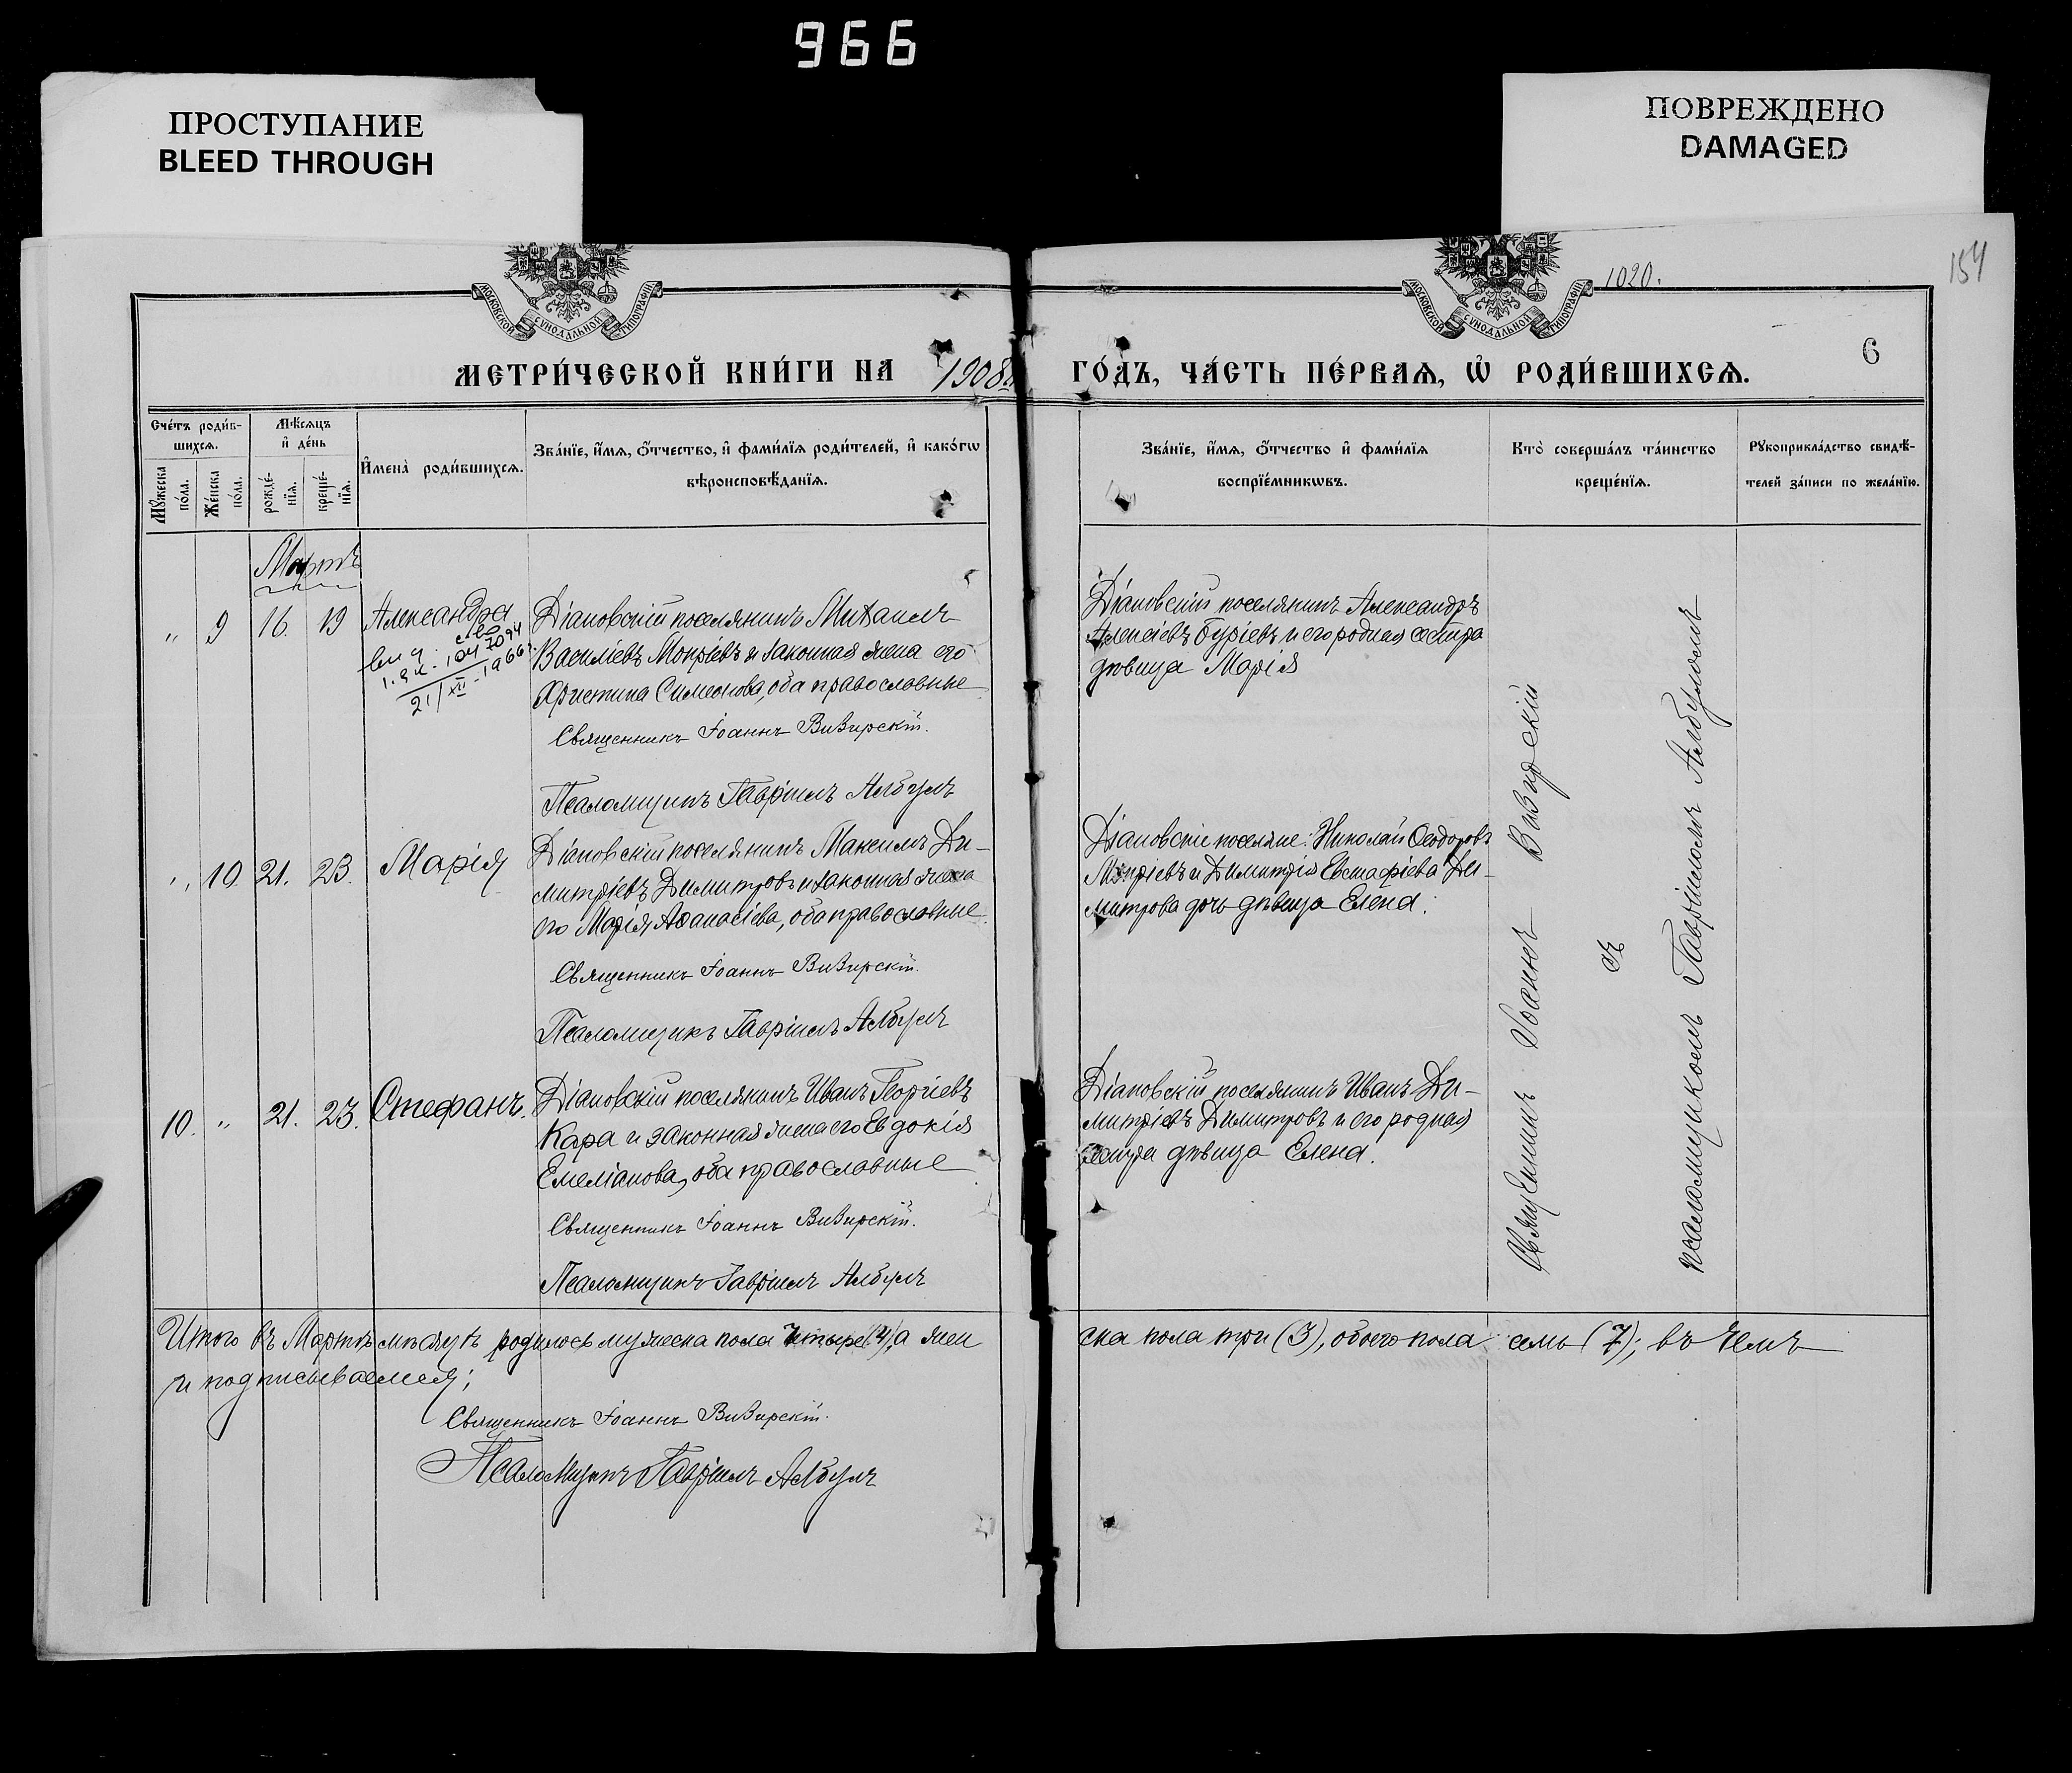 966
ПРОСТУПАНИЕ
BLEED THROUGH
ПОВРЕЖДЕНО
DAMAGED
МОСКОВСКОЙ СѴНОДАЛЬНОЙ ТИПОГРАФІИ
МОСКОВСКОЙ СѴНОДАЛЬНОЙ ТИПОГРАФІИ
1020.
154
6
МЕТРИ́ЧЕСКОЙ КНИ́ГИ НА 1908й ГО́ДЪ, ЧА́СТЬ ПЕ́РВАѦ, Ѡ҆ РОДИ́ВШИХСѦ.
Сче́тъ роди́в-
шихсѧ.
Мѣ́сѧцъ
и҆ де́нь
Мꙋ́жеска
по́ла.
Же́нска
по́ла.
рожде́-
нїѧ.
креще́-
нїѧ.
И҆мена̀ роди́вшихсѧ.
Зва́нїе, и҆́мѧ, ѻ҆́тчество, и҆ фами́лїѧ роди́телей, и҆ како́гѡ
вѣроисповѣ́данїѧ.
Зва́нїе, и҆́мѧ, ѻ҆́тчество и҆ фами́лїѧ
воспрїе́мникѡвъ.
Кто̀ соверша́лъ та́инство
креще́нїѧ.
Рꙋкоприкла́дство свидѣ́-
телей за́писи по жела́нїю.
Мартъ
" 9 16. 19 Александра
21/XII-1966
Діановскій поселянинъ Михаилъ
Василіевъ Мокріевъ и законная жена его
Христина Симеонова, оба православные
Священникъ Іоаннъ Визирскій.
Псаломщикъ Гавріилъ Албулъ
Діановскій поселянинъ Александръ
Алексіевъ Буріевъ и его родная сестра
дѣвица Марія
" 10. 21. 23. Марія
Діановскій поселянинъ Максимъ Ди-
митріевъ Димитровъ и законная жена
его Марія Аѳанасіева, оба православные.
Священникъ Іоаннъ Визирскій.
Псаломщикъ Гавріилъ Албулъ
Діановскіе поселяне: Николай Ѳеодоровъ
Мокріевъ и Димитрія Евстафіева Ди-
митрова дочь дѣвица Елена.
10. " 21. 23. Стефанъ.
Діановскій поселянинъ Иванъ Георгіевъ
Кара и законная жена его Евдокія
Емеліанова, оба православные
Священникъ Іоаннъ Визирскій.
Псаломщикъ Гавріилъ Албулъ
Діановскій поселянинъ Иванъ Ди-
митріевъ Димитровъ и его родная
сестра дѣвица Елена.
Священникъ Іоаннъ Визирскій
съ
псаломщикомъ Гавріиломъ Албуломъ
Итого въ Мартѣ мѣсяцѣ родилось мужеска пола четыре (4), а жен
ска пола три (3), обоего пола семь (7); въ чемъ
и подписываемся;
Священникъ Іоаннъ Визирскій.
Псаломщикъ Гавріилъ Албулъ